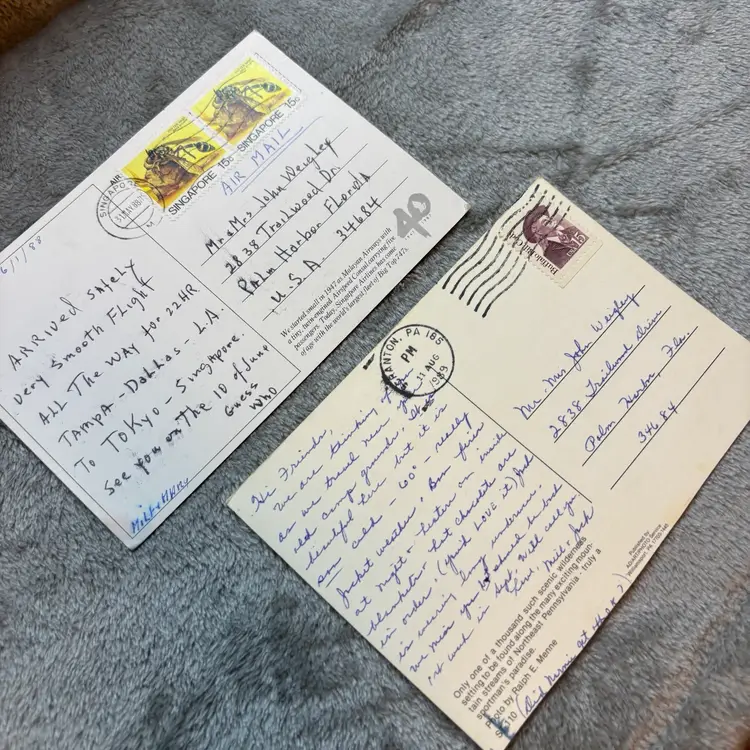 6/1/88
ARRIVED SAFELY
very Smooth FLIGHT
ALL THE WAY for 22HR
TAMPA - DAhhas - L.A.
To ToKyo - Singapore.
See you on the 10 of June
Guess
Who
SINGAPORE 15c
SINGAPORE 15c
SINGAPORE
AIR MAIL
Mr & Mrs John Weigley
2838 Trailwood Dr.
Palm Harbor Florida
U.S.A. 34684
We started small in 1947 as Malayan Airways with
a tiny, twin-engined Airspeed Consul carrying five
passengers. Today, Singapore Airlines has come
of age with the world's largest fleet of Big Top 747s.
Hi Friends,
We are thinking of
as we travel near your
old camp grounds. It's
beautiful here but it is
so cool - 60° really
jacket weather. Bon fires
at night - listen on inside
blankets & hot chocolate are
in order. (You'd LOVE it) Josh
is wearing long underwear.
We miss you & should be back
1st week in Sept. Will call you
Love, Josh
Only one of a thousand such scenic wilderness
setting to be found along the many exciting moun-
tain streams of Northeast Pennsylvania - truly a
sportman's paradise.
Photo by Ralph E. Menne
SCRANTON, PA 185
PM
11 AUG
1989
15c
Mr. Mrs John Weigley
2838 Trailwood Drive
Palm Harbor, Fla.
34684
Published by